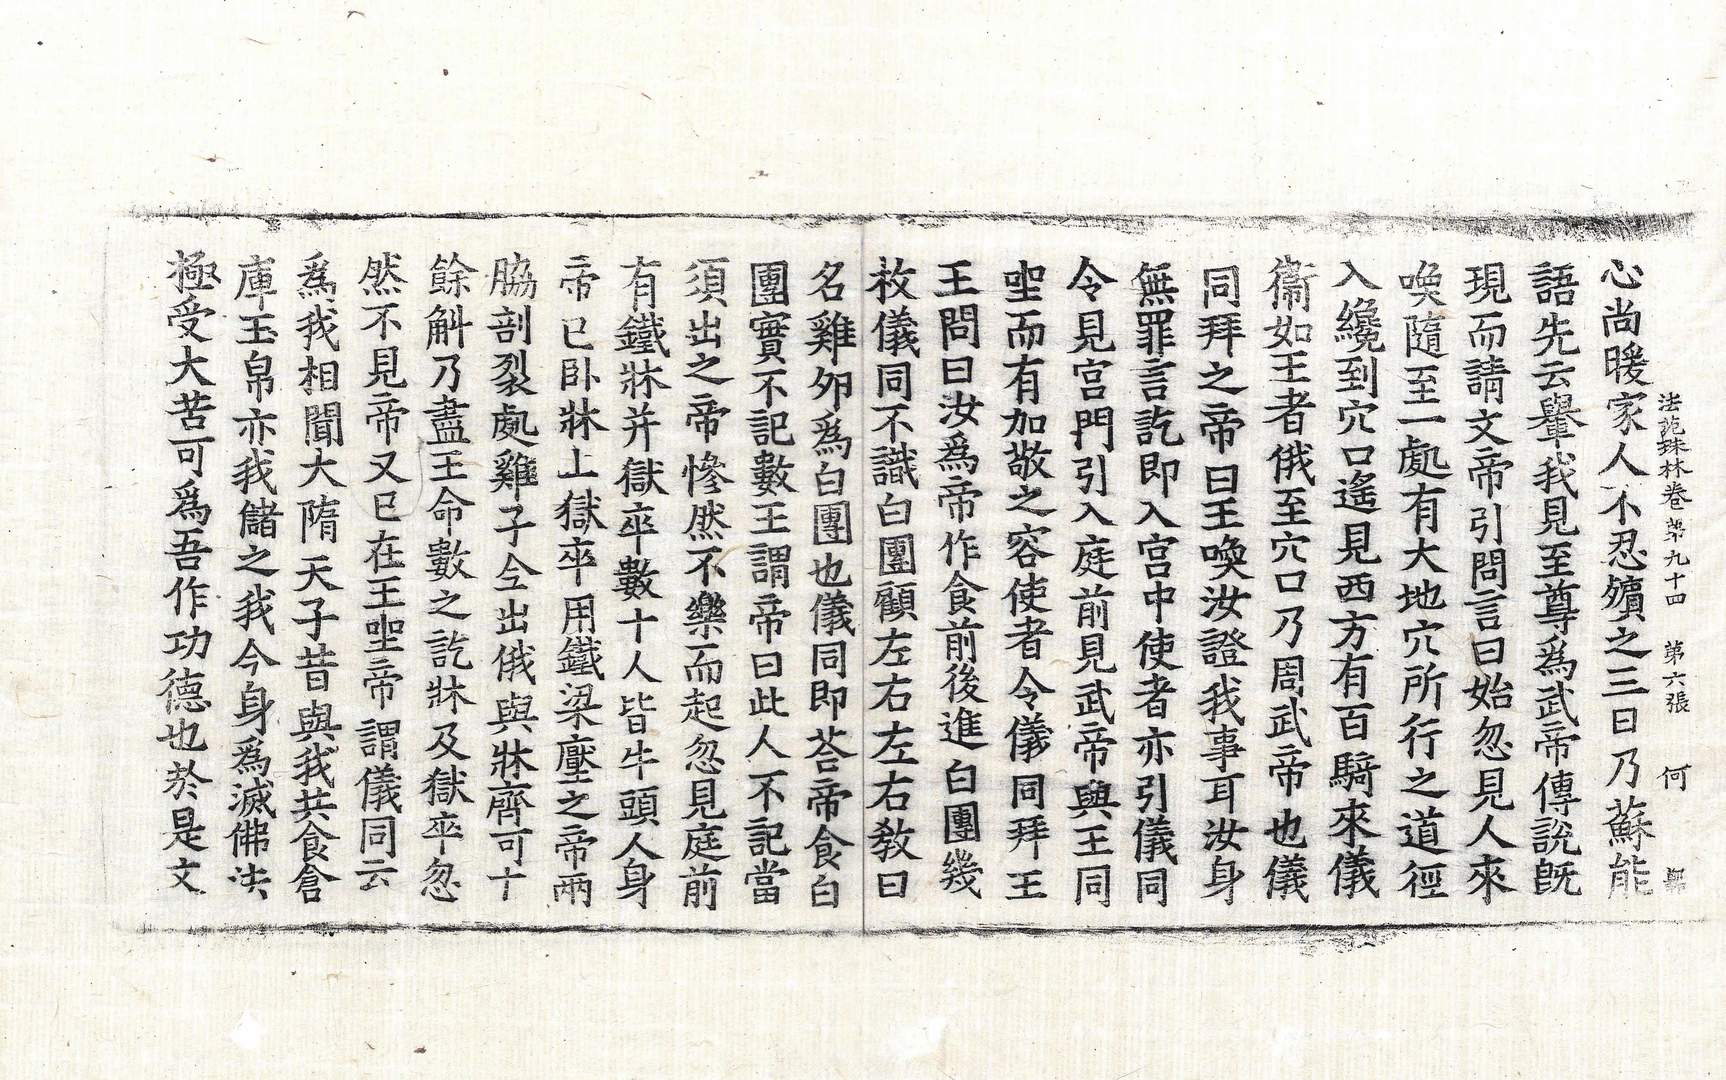 法苑珠林卷第九十四 第六張 何
心尚暖家人不忍殯之三日乃蘇能
語先云轝我見至尊爲武帝傳說旣
現而請文帝引問言曰始忽見人來
喚隨至一處有大地穴所行之道徑
入纔到穴口遙見西方有百騎來儀
衞如王者俄至穴口乃周武帝也儀
同拜之帝曰王喚汝證我事耳汝身
無罪言訖即入宮中使者亦引儀同
令見宮門引入庭前見武帝與王同
坐而有加敬之容使者令儀同拜王
王問曰汝爲帝作食前後進白團幾
枚儀同不識白團顧左右左右敎曰
名雞卵爲白團也儀同即荅帝食白
團實不記數王謂帝曰此人不記當
須出之帝慘然不樂而起忽見庭前
有鐵牀并獄卒數十人皆牛頭人身
帝已卧牀上獄卒用鐵梁壓之帝兩
脇剖裂處雞子全出俄與牀齊可十
餘斛乃盡王命數之訖牀及獄卒忽
然不見帝又已在王坐帝謂儀同云
爲我相聞大隋天子昔與我共食倉
庫玉帛亦我儲之我今身爲滅佛法
極受大苦可爲吾作功德也於是文